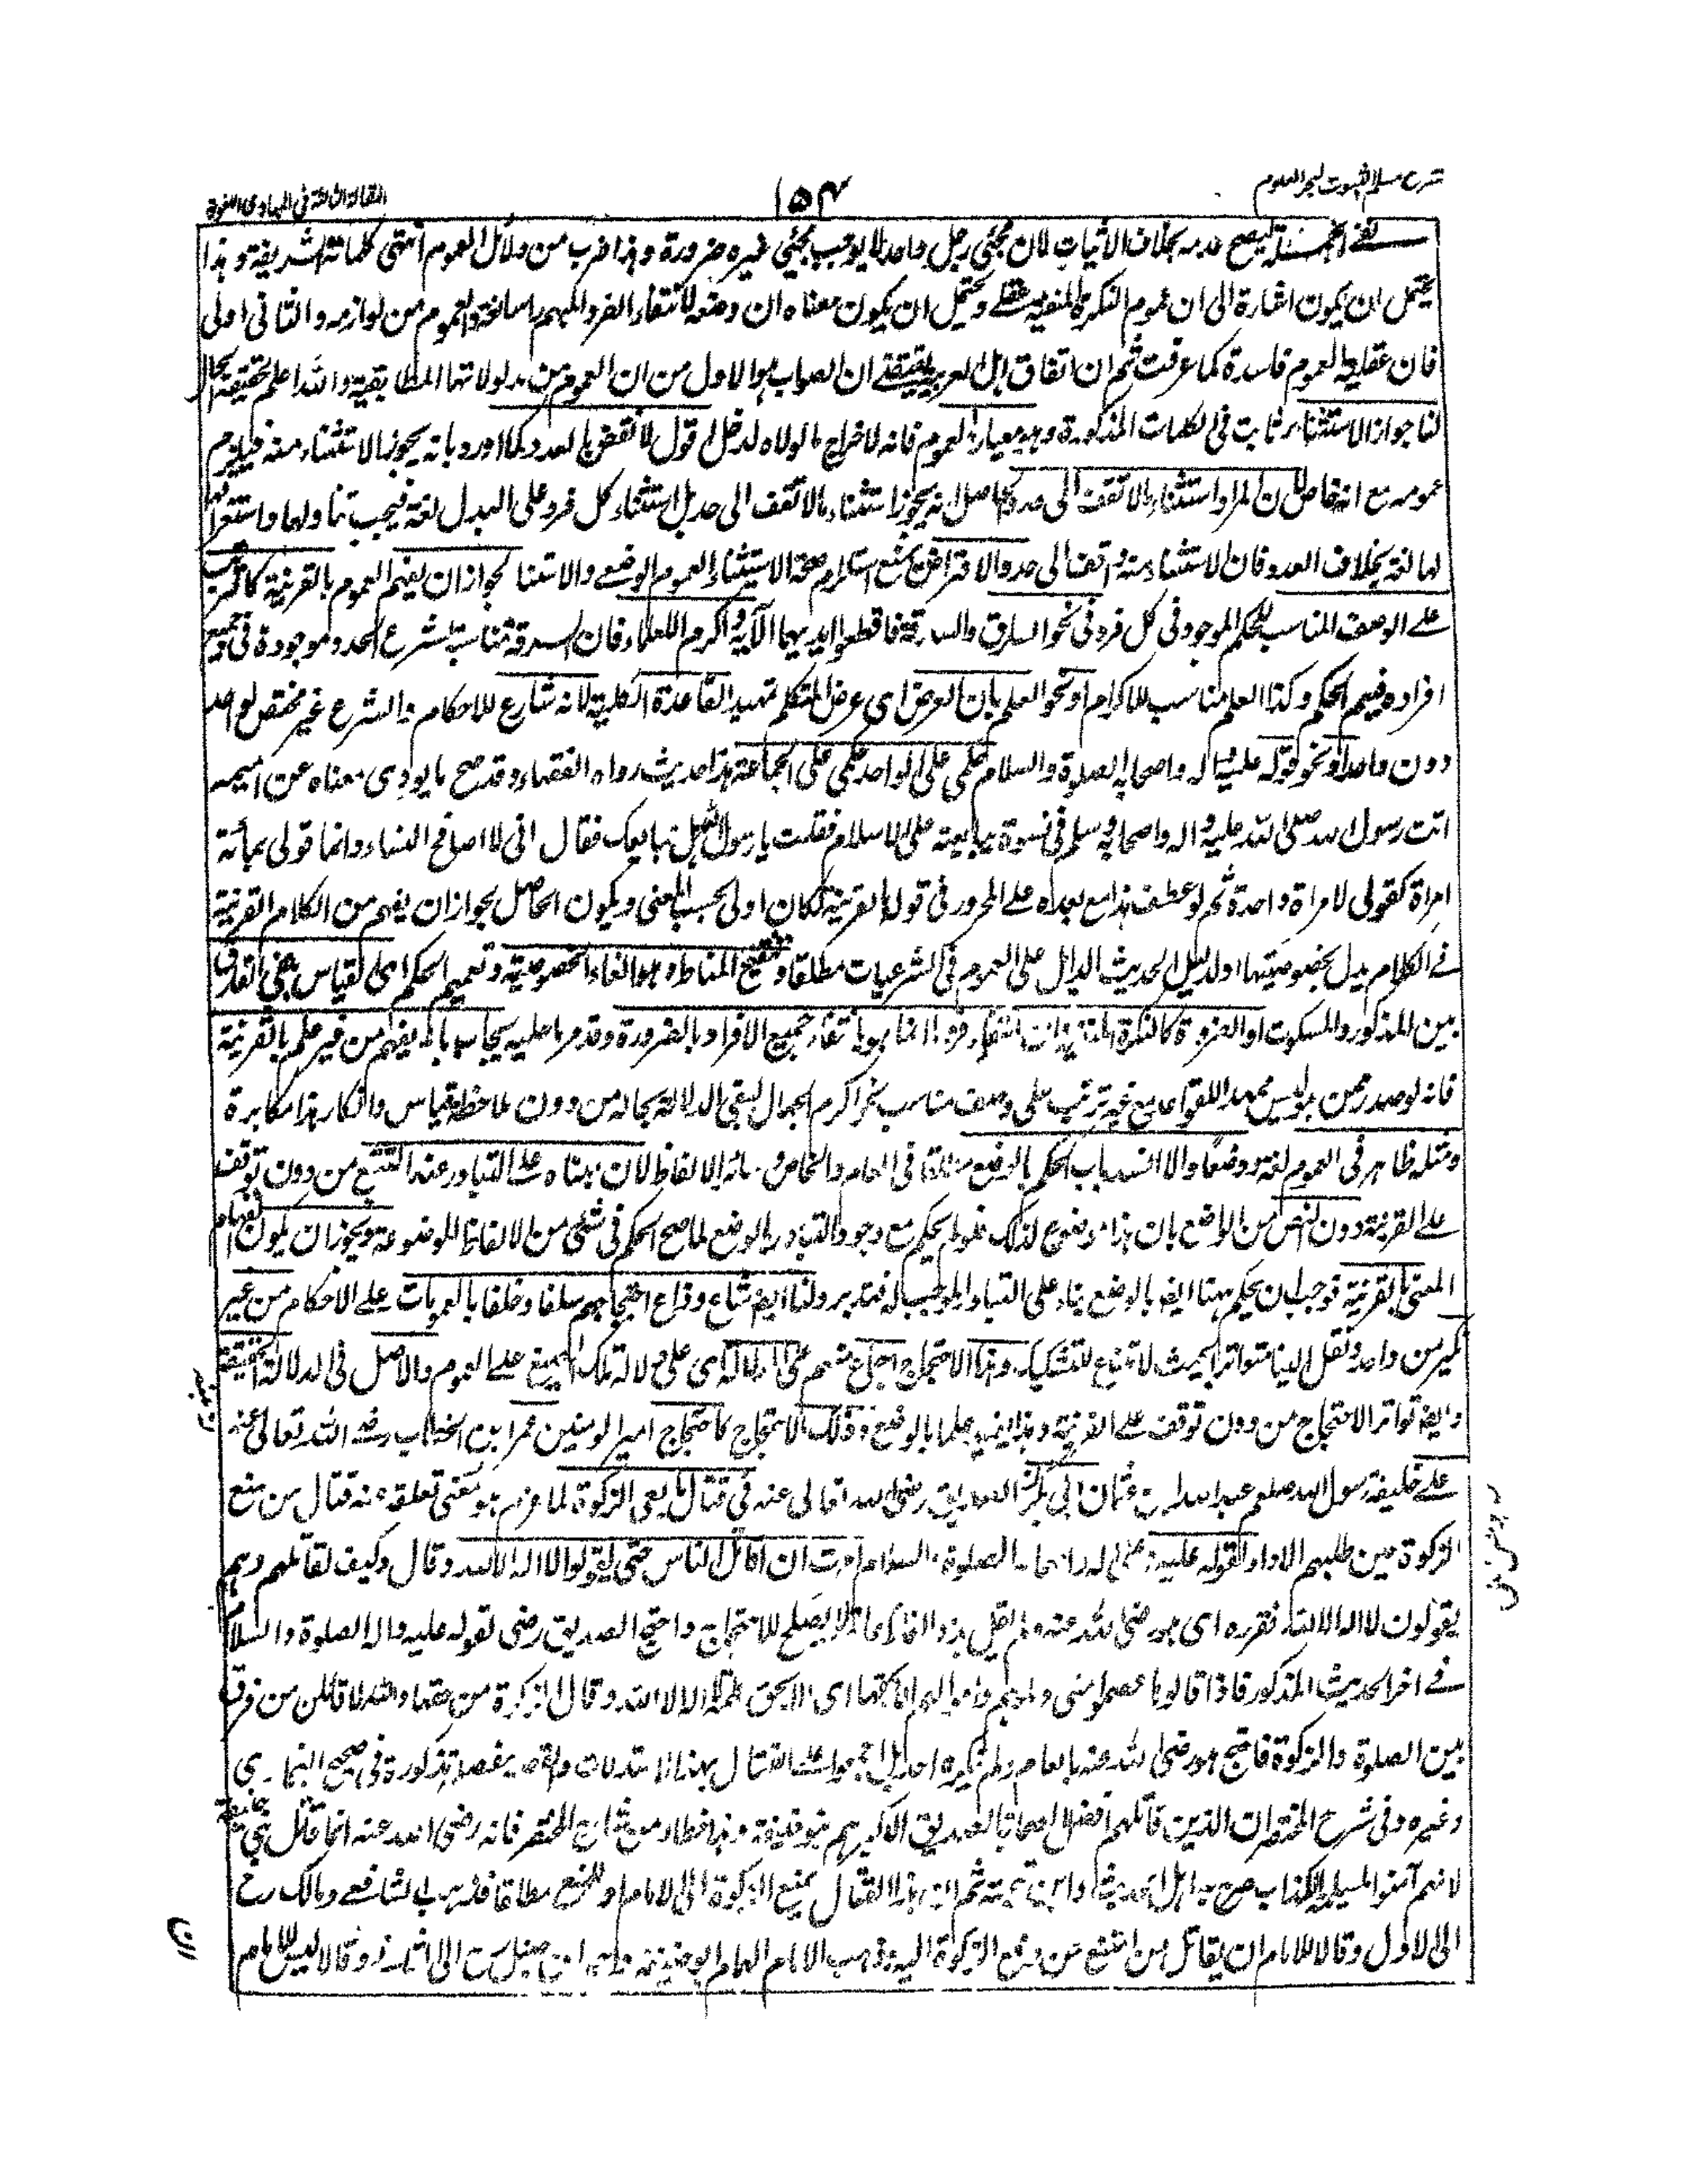 شرح مسلم الثبوت لبحر العلوم
١٥٤
المقالة الثالثة في المبادي اللغوية
نفي الجملة ليصح عدمه بخلاف الاثبات لان مجئي رجل واحد لا يوجب مجئي غيره ضرورة وهذا ضرب من دلائل العموم انتهى كلماته الشريفة وهذا
يحتمل ان يكون اشارة الى ان عموم النكرة المنفية عقلي ويحتمل ان يكون معناه ان وضعه لانتفاء الفرد المبهم والعموم من لوازمه والثاني اولى
فان عقلية العموم فاسدة كما عرفت ثم ان اتفاق اهل العربية يقتضي ان الصواب هو الاول من ان العموم من مدلولاتها المطابقية والله اعلم بحقيقة الحال
لنا جواز الاستثناء ثابت في الكلمات المذكورة وهو معيار العموم فانه لاخراج ما لولاه لدخل اقول لا نقض بالعدد كما اورد بانه يجوز الاستثناء منه فيلزم
عمومه مع انه خاص لان المراد استثناء ما لا تقف الى حد والحاصل انه يجوز استثناء ما لا تقف الى حد بل استثناء كل فرد على البدل لغة فيجب تناولها واستغراقها
لها لغة بخلاف العدد فان الاستثناء منه واقف الى حد والاعتراض بمنع استلزام صحة الاستثناء العموم الوضعي والاستناد لجواز ان يفهم العموم بالقرينة كالترتب
على الوصف المناسب للحكم الموجود في كل فرد في نحو السارق والسارقة فاقطعوا ايديهما الآية واكرم العلماء فان السرقة مناسبة لشرع الحد وموجودة في جميع
افراده فيعم الحكم وكذا العلم مناسب للاكرام او نحو العلم بان الغرض اي غرض المتكلم تمهيد القاعدة الكلية لانه شارع للاحكام والشرع غير مختص لواحد
دون واحد او نحو قوله عليه وآله واصحابه الصلوة والسلام حكمي على الواحد حكمي على الجماعة هذا حديث رواه الفقهاء وقد صح ما يودي معناه عن اميمة
اتت رسول الله صلى الله عليه وآله واصحابه وسلم في نسوة يبايعنه على الاسلام فقلت يا رسول الله هل نبايعك فقال اني لا اصافح النساء وانما قولي بمائة
امراة كقولي لامراة واحدة ثم لو عطف هذا مع بعداه على المجرور في قوله بالقرينة لكان اولى بحسب المعنى ويكون الحاصل بجواز ان يفهم من الكلام القرينة
في الكلام يدل بخصوصيتها او لدليل الحديث الدال على العموم في الشرعيات مطلقا وتنقيح المناط وهو الغاء الخصوصية وتعميم الحكم اي القياس بنفي الفارق
بين المذكور والمسكوت او الضرورة كالنكرة المنفية فان انتفاء فرد ما انما هو بانتفاء جميع الافراد بالضرورة وقد مر ما عليه يجاب بانه يفهم من غير علم بالقرينة
فانه لو صدر ممن هو ليس ممهدا للقواعد مع غير ترتيب على وصف مناسب نحو اكرم الجهال لبقي الدلالة بحاله من دون ملاحظة قياس وانكار هذا مكابرة
ومثله ظاهر في العموم لغة ووضعا والا انسد باب الحكم بالوضع مطلقا في العام والخاص وسائر الالفاظ لان بناه على التبادر عند التتبع من دون توقف
على القرينة دون النص من الواضع بان هذا موضوع لذلك فلو لم يحكم مع وجود التبادر بالوضع لما صح الحكم في شئ من الالفاظ الموضوعة ويجوز ان يكون انفهام
المعنى بالقرينة فوجب ان يحكم ههنا ايضا بالوضع بناء على التبادر الموجب له فتدبر ولنا ايضا شاع وذاع احتجاجهم سلفا وخلفا بالعمومات على الاحكام من غير
نكير من واحد ونقل الينا متواترا بحيث لا مساغ للتشكيك وهذا الاحتجاج اجماع منهم على الدلالة اي على دلالة تلك الصيغ على العموم والاصل في الدلالة الحقيقة
وايضا تواتر الاحتجاج من دون توقف على القرينة وهذا يفيد علما بالوضع وذلك الاحتجاج كاحتجاج امير المومنين عمر ابن الخطاب رضي الله تعالى عنه
على خليفة رسول الله صلعم عبد الله ابن عثمان ابي بكر الصديق رضي الله تعالى عنه في قتال مانعي الزكوة لما عزم هو يعني تعلقه عنه قتال من منع
الزكوة حين طلبهم الاداء لقوله عليه وعلى آله واصحابه الصلوة والسلام امرت ان اقاتل الناس حتى يقولوا لا اله الا الله وقال وكيف تقاتلهم وهم
يقولون لا اله الا الله فقرره اي هو رضي الله عنه ولم يقل هذه الفاظ عامة لا يصلح للاحتجاج واحتج الصديق رضي لقوله عليه وآله الصلوة والسلام
في اخر الحديث المذكور فاذا قالوها عصموا مني دماءهم واموالهم الا بحقها اي الا بحق كلمة لا اله الا الله وقال الزكوة من حقها والله لاقاتلن من فرق
بين الصلوة والزكوة فاحتج هو رضي الله عنه بالعام ولم ينكره احد بل اجمعوا على القتال بهذا الاستدلال والقصة بفصلها مذكورة في صحيح البخاري
وغيره وفي شرح المختصر ان الذين قاتلهم افضل الصحابة الصديق الاكبر هم بنو حنيفة وهذا خطاء من شارح المختصر فانه رضي الله عنه انما قاتل بني حنيفة
لانهم آمنوا المسيلمة الكذاب صرح به اهل الحديث وابن تيمية ثم ان هذا القتال بمنع الزكوة الى الامام او للمنع مطلقا فذهب الشافعي ومالك رح
الى الاول وقالا للامام ان يقاتل من امتنع عن دفع الزكوة اليه وذهب الامام الهمام ابو حنيفة وابن حنبل رح الى الثاني وقالا ليس للامام
ان